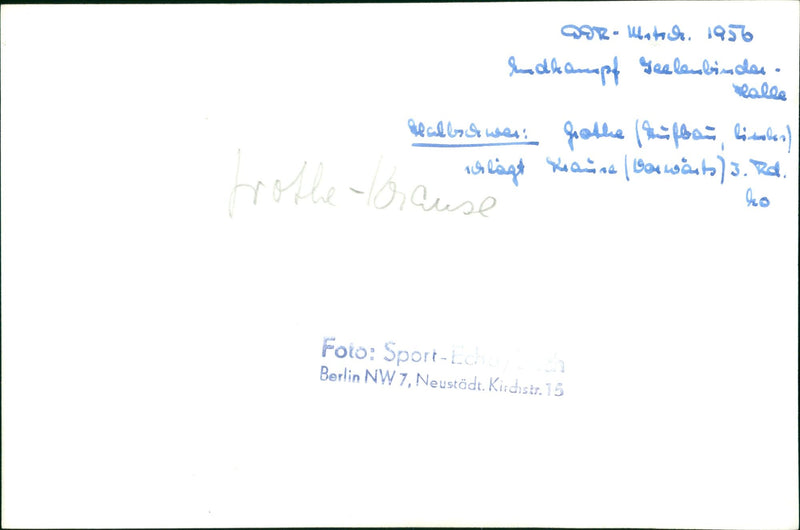 DDR-Mstsch. 1956
Endkampf Seelenbinder-
Halle
Halbschwer: Grothe (Aufbau, links)
schlägt Krause (Vorwärts) 3. Rd.
ko
Grothe-Krause
Foto: Sport-Echo /
Berlin NW 7, Neustädt. Kirchstr. 15